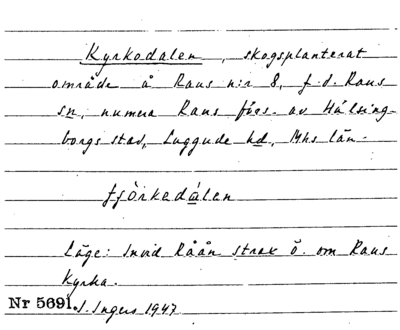 Kyrkodalen, skogsplanterat
område å Raus n:r 8, f.d. Raus
sn, numera Raus förs. av Hälsing-
borgs stad, Luggude hd, Mhs län.
Läge: Invid Råån strax ö. om Raus
Kyrka.
Nr 5691. I. Ingers 1947